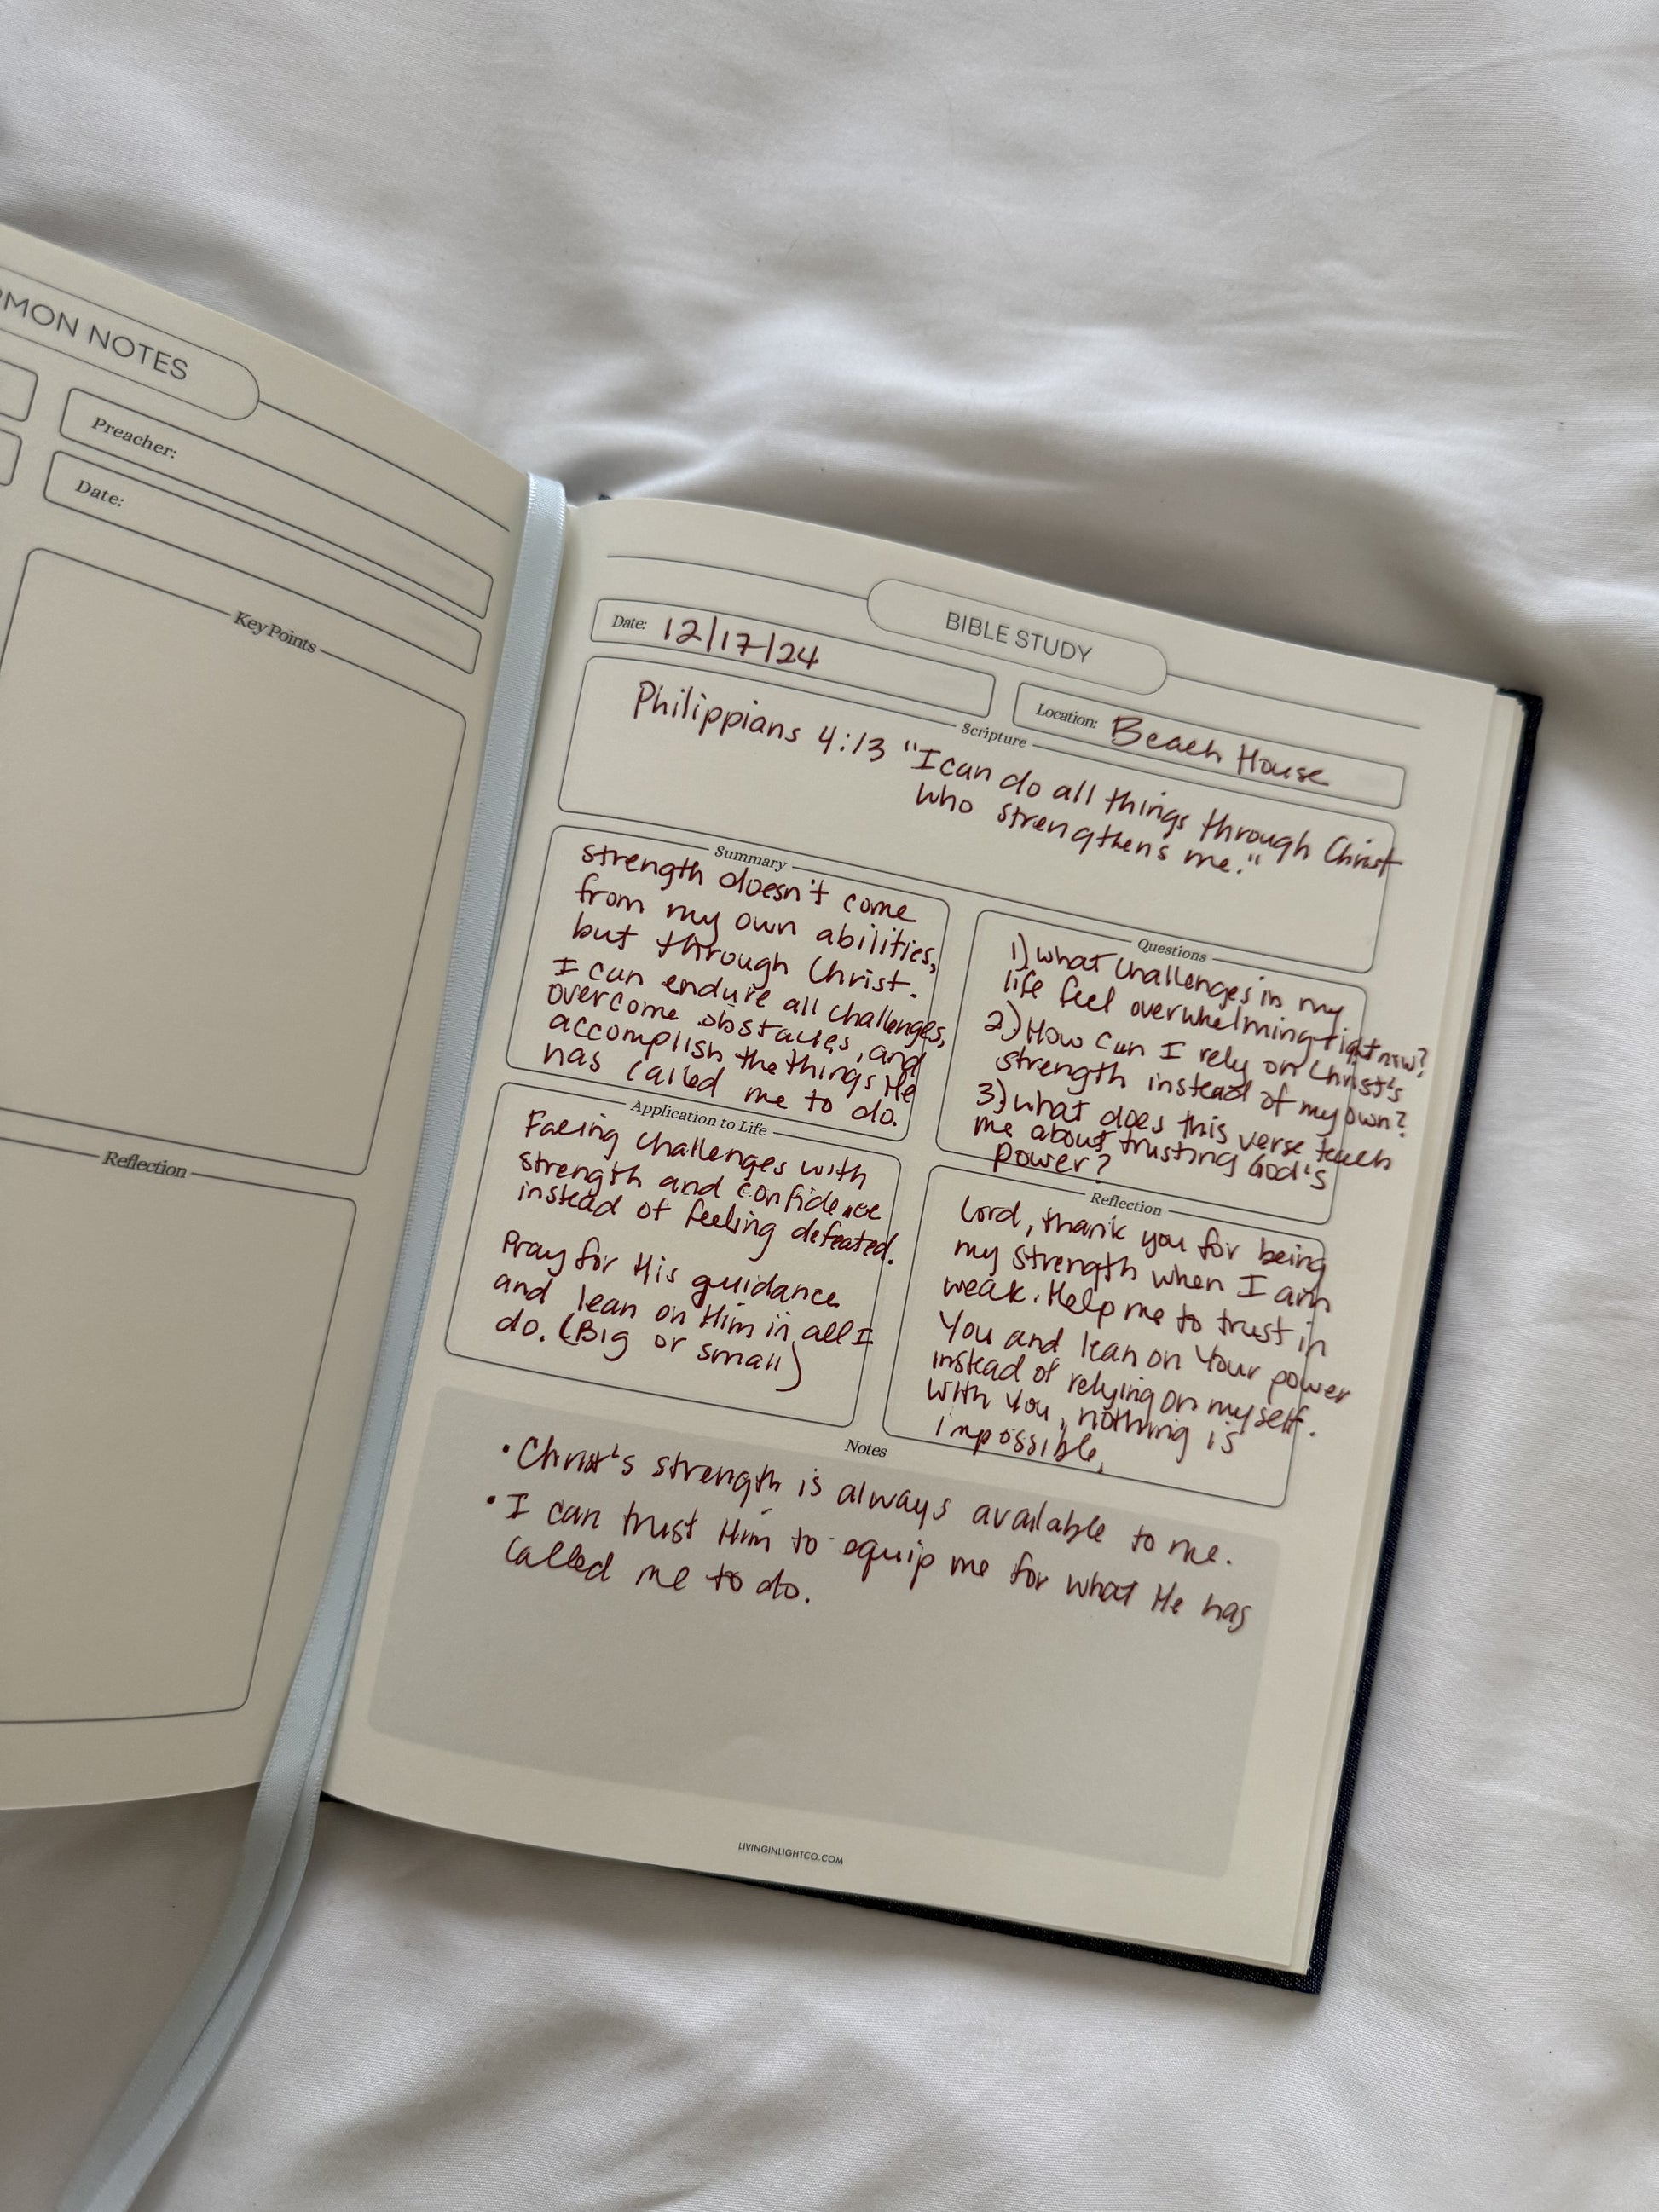 MON NOTES
Preacher:
Date:
Key Points
Reflection
BIBLE STUDY
Date: 12/17/24
Location: Beach House
Scripture
Philippians 4:13 "I can do all things through Christ
who strengthens me."
Summary
strength doesn't come
from my own abilities,
but through Christ.
I can endure all challenges,
overcome obstacles, and
accomplish the things He
has called me to do.
Questions
1) what challenges in my
life feel overwhelming right now?
2) How can I rely on Christ's
strength instead of my own?
3) what does this verse teach
me about trusting God's
power?
Application to Life
Facing challenges with
strength and confidence
instead of feeling defeated.
Pray for His guidance
and lean on Him in all I
do. (Big or small)
Reflection
Lord, thank you for being
my strength when I am
weak. Help me to trust in
You and lean on Your power
instead of relying on myself.
With You, nothing is
impossible.
Notes
• Christ's strength is always available to me.
• I can trust Him to equip me for what He has
called me to do.
LIVINGINLIGHTCO.COM